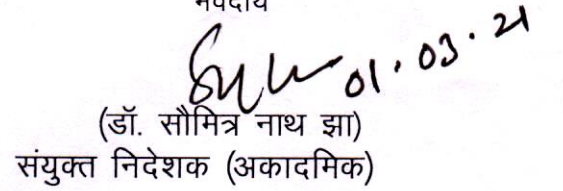 भवदीय
01.03.21
(डॉ. सौमित्र नाथ झा)
संयुक्त निदेशक (अकादमिक)